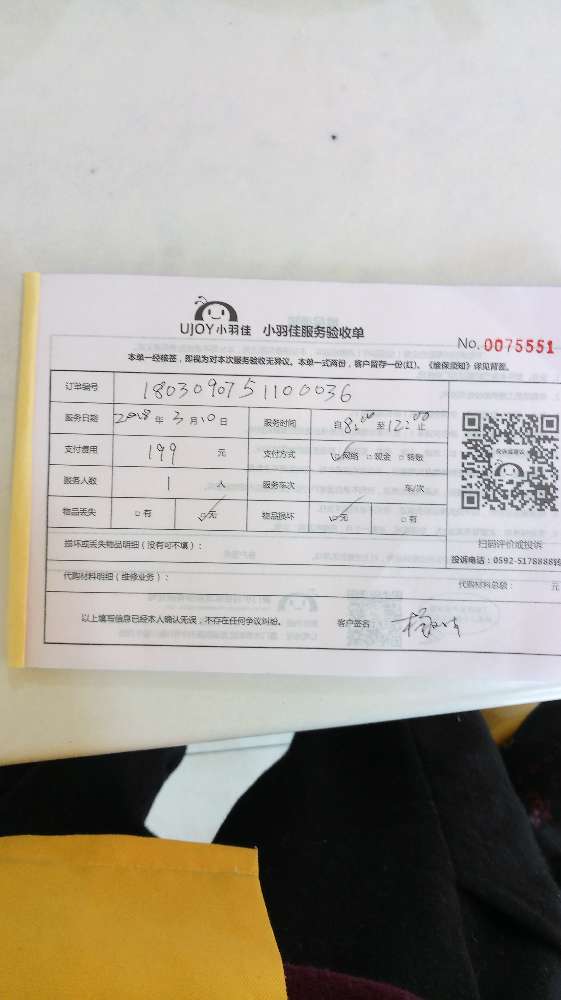 UJOY小羽佳 小羽佳服务验收单
No. 0075551
本单一经核签，即视为对本次服务验收无异议。本单一式两份，客户留存一份(红)。《维保须知》详见背面。
订单编号 1803090751100036
服务日期 2018年3月10日 服务时间 自8:00至12:00止
支付费用 199 元 支付方式 ☑网络 □现金 □转账
服务人数 1 人 服务车次 车/次
物品丢失 □有 ☑无 物品损坏 ☑无 □有
损坏或丢失物品明细（没有可不填）：
扫码评价或投诉
投诉电话：0592-5178888转
代购材料明细（维修业务）： 代购材料总额： 元
以上填写信息已经本人确认无误，不存在任何争议纠纷。 客户签名